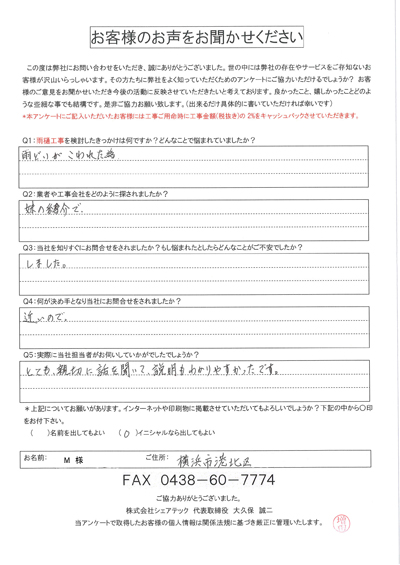 お客様のお声をお聞かせください
この度は弊社にお問い合わせをいただき、誠にありがとうございました。世の中には弊社の存在やサービスをご存知ないお
客様が沢山いらっしゃいます。その方たちに弊社をよく知っていただくためのアンケートにご協力いただけるでしょうか？ お客
様のご意見をお聞かせいただき今後の活動に反映させていただきたいと考えております。良かったこと、嬉しかったことどのよ
うな些細な事でも結構です。是非ご協力お願い致します。（出来るだけ具体的に書いていただければ幸いです）
*本アンケートにご記入いただいたお客様には工事ご用命時に工事金額(税抜き)の2%をキャッシュバックさせていただきます。
Q1：雨樋工事を検討したきっかけは何ですか？どんなことで悩まれていましたか？
雨どいが こわれた為
Q2：業者や工事会社をどのように探されましたか？
妹の紹介で、
Q3：当社を知りすぐにお問合せをされましたか？もし悩まれたとしたらどんなことがご不安でしたか？
しました。
Q4：何が決め手となり当社にお問合せをされましたか？
近いので。
Q5：実際に当社担当者がお伺いしていかがでしたでしょうか？
とても、親切に話を聞いて、説明もわかりやすかったです。
＊上記についてお願いがあります。インターネットや印刷物に掲載させていただいてもよろしいでしょうか？下記の中から〇印
をお付下さい。
（　　）名前を出してもよい　（ 〇 ）イニシャルなら出してもよい
お名前： M 様 ご住所： 横浜市港北区
FAX 0438－60－7774
ご協力ありがとうございました。
株式会社シェアテック 代表取締役 大久保 誠二
当アンケートで取得したお客様の個人情報は関係法規に基づき厳正に管理いたします。